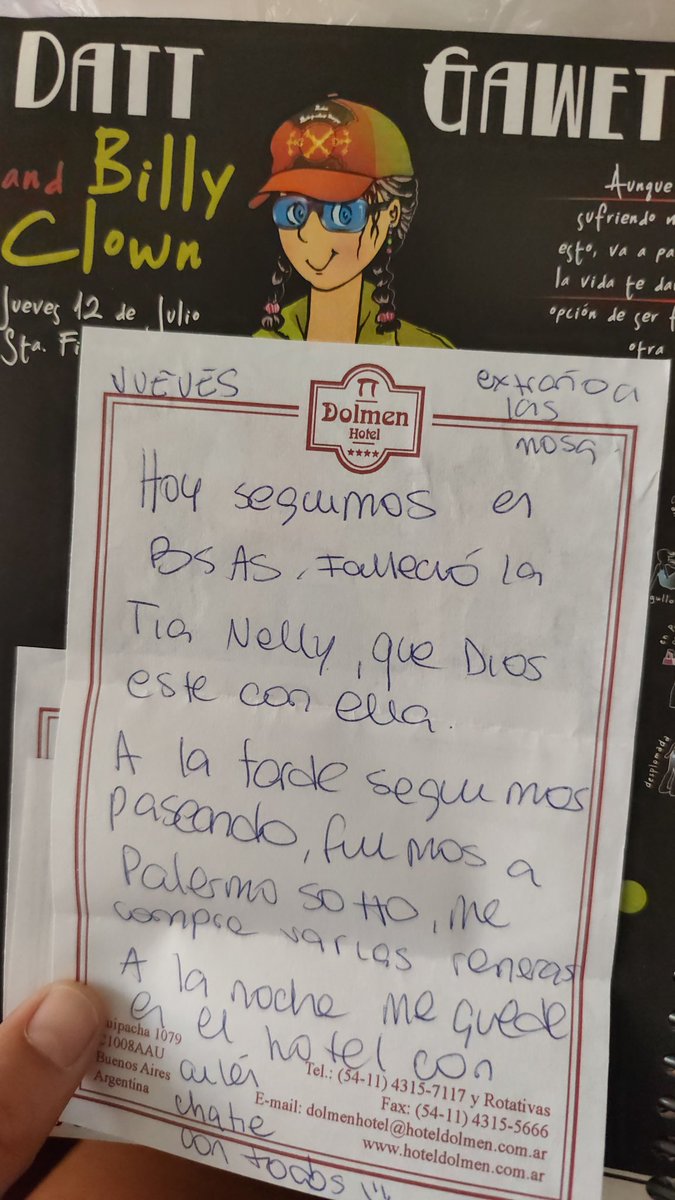 DATT GAWET
and Billy
Clown
Jueves 12 de Julio
Sta. Fi
Aunque
sufriendo
esto, va a pa
la vida te da
opción de ser
otra
JUEVES
extraño a
las
Dolmen
Hotel
Hoy seguimos en
BS AS, Falleció la
Tia Nelly, que Dios
este con ella.
A la tarde seguimos
paseando, fuimos a
Palermo SOHO, me
compre varias remeras
A la noche me quede
en el hotel con
uipacha 1079
1008AAU
Buenos Aires
Argentina
Tel.: (54-11) 4315-7117 y Rotativas
Fax: (54-11) 4315-5666
E-mail: dolmenhotel@hoteldolmen.com.ar
www.hoteldolmen.com.ar
chatie
con todos !!!
desplomada